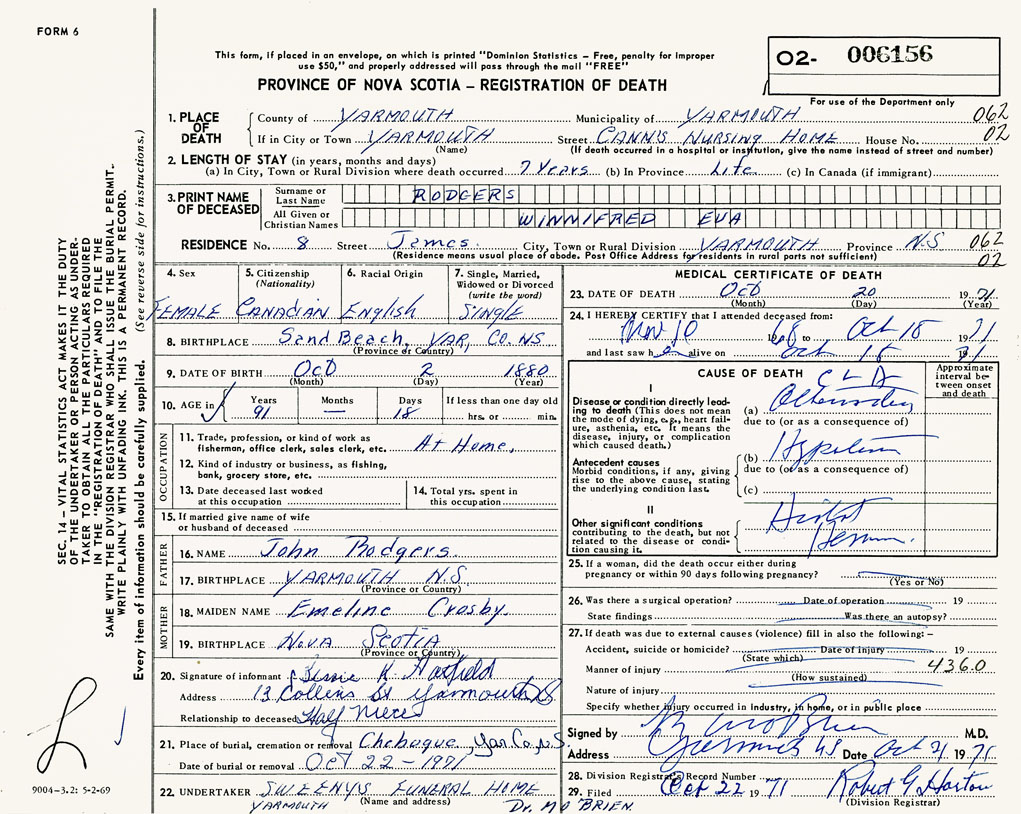 FORM 6
This form, if placed in an envelope, on which is printed "Dominion Statistics – Free, penalty for improper
use $50," and properly addressed will pass through the mail "FREE"
O2- 006156
PROVINCE OF NOVA SCOTIA – REGISTRATION OF DEATH
For use of the Department only
1. PLACE OF DEATH
County of YARMOUTH Municipality of YARMOUTH 062
If in City or Town YARMOUTH Street CANN'S NURSING HOME House No. 02
(Name) (If death occurred in a hospital or institution, give the name instead of street and number)
2. LENGTH OF STAY (in years, months and days)
(a) In City, Town or Rural Division where death occurred 7 Years (b) In Province Life (c) In Canada (if immigrant)
3. PRINT NAME OF DECEASED
Surname or Last Name RODGERS
All Given or Christian Names WINNIFRED EVA
RESIDENCE No. 8 Street James. City, Town or Rural Division YARMOUTH Province N.S 062
(Residence means usual place of abode. Post Office Address for residents in rural parts not sufficient) 02
4. Sex FEMALE
5. Citizenship (Nationality) CANADIAN
6. Racial Origin English
7. Single, Married, Widowed or Divorced (write the word) SINGLE
8. BIRTHPLACE Sand Beach, YAR, CO. NS
(Province or Country)
9. DATE OF BIRTH OCT 2 1880
(Month) (Day) (Year)
10. AGE in Years 91 Months — Days 18 If less than one day old hrs. or min.
OCCUPATION
11. Trade, profession, or kind of work as
fisherman, office clerk, sales clerk, etc. At Home,
12. Kind of industry or business, as fishing,
bank, grocery store, etc.
13. Date deceased last worked
at this occupation
14. Total yrs. spent in
this occupation
15. If married give name of wife
or husband of deceased
FATHER
16. NAME John Rodgers.
17. BIRTHPLACE YARMOUTH N.S.
(Province or Country)
MOTHER
18. MAIDEN NAME Emeline Crosby
19. BIRTHPLACE NOVA SCOTIA
(Province or Country)
20. Signature of informant Bessie K. Hatfield
Address 13 Collins St Yarmouth NS
Relationship to deceased Half Niece
21. Place of burial, cremation or removal Chebogue, Yar. Co., N.S.
Date of burial or removal OCT 22 – 1971
22. UNDERTAKER SWEENY'S FUNERAL HOME
YARMOUTH (Name and address) Dr. M O'BRIEN.
MEDICAL CERTIFICATE OF DEATH
23. DATE OF DEATH OCT 20 1971
(Month) (Day) (Year)
24. I HEREBY CERTIFY that I attended deceased from:
Nov 10 1968 to Oct 18 1971
and last saw h er alive on Oct 18 1971
CAUSE OF DEATH
Approximate interval between onset and death
I
Disease or condition directly leading
to death (This does not mean
the mode of dying, e.g., heart failure,
asthenia, etc. It means the
disease, injury, or complication
which caused death.)
(a)
due to (or as a consequence of)
Antecedent causes
Morbid conditions, if any, giving
rise to the above cause, stating
the underlying condition last.
(b)
due to (or as a consequence of)
(c)
II
Other significant conditions
contributing to the death, but not
related to the disease or condition
causing it.
25. If a woman, did the death occur either during
pregnancy or within 90 days following pregnancy?
(Yes or No)
26. Was there a surgical operation? Date of operation 19
State findings Was there an autopsy?
27. If death was due to external causes (violence) fill in also the following: –
Accident, suicide or homicide? Date of injury 19
(State which)
Manner of injury 4360
(How sustained)
Nature of injury
Specify whether injury occurred in industry, in home, or in public place
Signed by M.D.
Address Yarmouth NS Date Oct 21 1971
28. Division Registrar's Record Number
29. Filed Oct 22 1971 Robert G Horton
(Division Registrar)
SEC. 14 – VITAL STATISTICS ACT MAKES IT THE DUTY
OF THE UNDERTAKER OR PERSON ACTING AS UNDER-
TAKER TO OBTAIN ALL THE PARTICULARS REQUIRED
IN THE "REGISTRATION OF DEATH" AND TO FILE THE
SAME WITH THE DIVISION REGISTRAR WHO SHALL ISSUE THE BURIAL PERMIT.
WRITE PLAINLY WITH UNFADING INK. THIS IS A PERMANENT RECORD.
Every item of information should be carefully supplied. (See reverse side for instructions.)
9004–3.2: 5-2-69